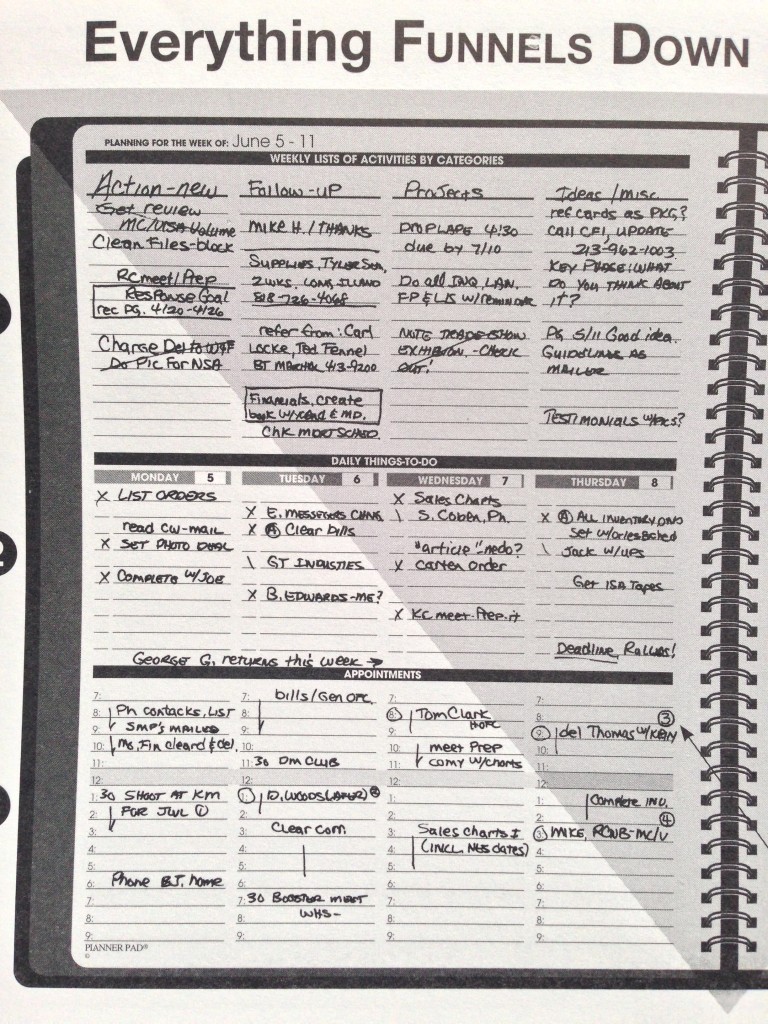 Everything FUNNELS DOWN
PLANNING FOR THE WEEK OF: June 5 - 11
WEEKLY LISTS OF ACTIVITIES BY CATEGORIES
Action-new
Get review
MC/VISA Volume
Clean Files-block
RC meet/Prep
Response Goal
rec pg. 4/20-4/26
Charge Del to
Do Pic For NSA
Follow-up
MIKE H. / THANKS
SUPPLIES, TYLER
2 WKS. LONG ISLAND
818-726-4068
refer from: Carl
LOCKE, Ted Fennel
BT 413-9200
Financials, create
book W/ & MD.
CHK
Projects
4:30
due by 7/10
Do all INQ. LAN.
W/
NOTE TRADE-SHOW
- CHECK
OUT!
Ideas / misc.
ref cards as PKG?
Call CFI, UPDATE
213-962-1003
KEY PHASE: WHAT
DO YOU THINK ABOUT
IT?
PG 5/11 Good idea
GUIDELINE AS
MAILER
TESTIMONIALS
DAILY THINGS-TO-DO
MONDAY 5
X LIST ORDERS
read CW-MAIL
X SET PHOTO
X COMPLETE W/JOE
TUESDAY 6
X E. MESSEGERS
X Ⓐ Clear bills
\ GT INDUSTIES
X B. EDWARDS-ME?
WEDNESDAY 7
X Sales Charts
\ S. Coben, Ph.
"article" nedo?
X Carten order
X KC meet-Prep it
THURSDAY 8
X Ⓐ ALL INVENTORY
Set
\ Jack W/UPS
Get ISA Tapes
Deadline,
GEORGE G, returns this week →
APPOINTMENTS
7:
8: Ph contacks, LIST
9: SMP's MAILED
10: Fin cleard & del
11:
12:
1: 30 SHOOT AT KM
2: FOR JWL ①
3:
4:
5:
6: Phone BJ, home
7:
8:
9:
7: bills/Gen OFC.
8:
9:
10:
11: 30 DM CLUB
12:
1: D, WOODS (AFTER) ②
2:
3: Clear Com.
4:
5:
6:
7: 30 BOOSTER MEET
8: WHS-
9:
7:
8: Tom Clark
9: HOFC
10: meet Prep
11: COMY W/charts
12:
1:
2:
3: Sales charts I
4: (INCL. NES dates)
5:
6:
7:
8:
9:
7:
8: ③
9: del Thomas W/KEVIN
10:
11:
12:
1: Complete INV.
2: ④
3: MIKE, FCNB-MC/V
4:
5:
6:
7:
8:
9:
PLANNER PAD®
©